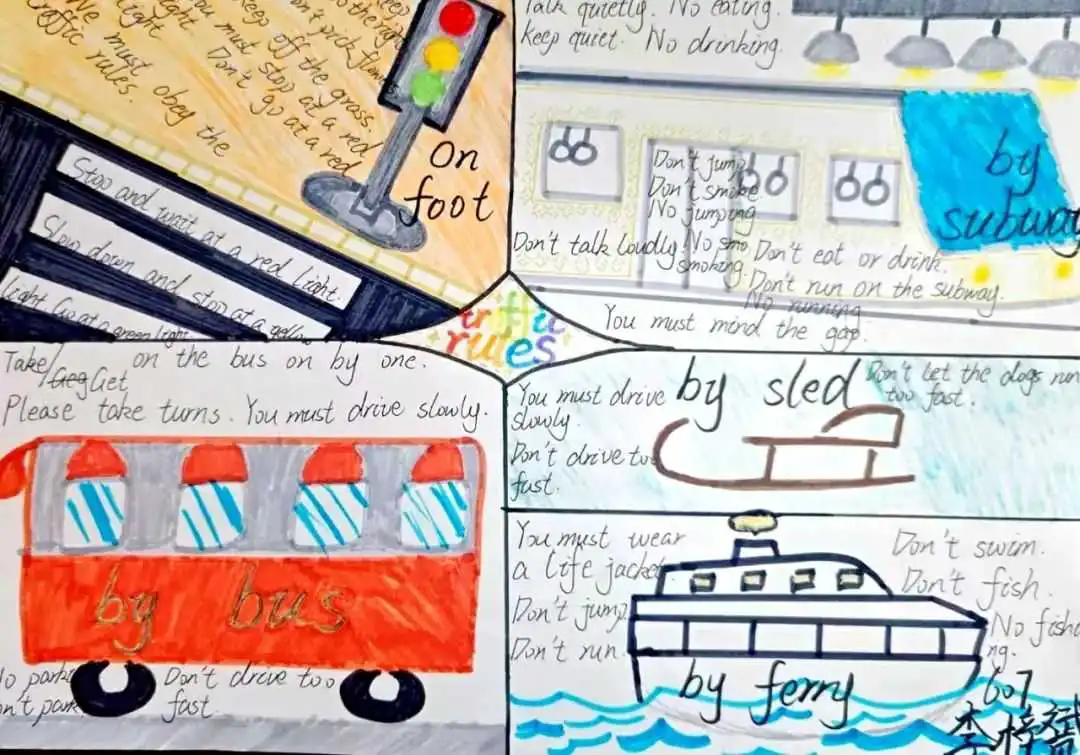 Keep off the grass.
You must stop at a red
light.
Don't go at a red
light.
We must obey the
traffic rules.
On
foot
Stop and wait at a red light.
Slow down and stop at a yellow
light Go at a green light.
Talk quietly. No eating.
Keep quiet. No drinking.
by
subway
Don't jump.
Don't smoke
No jumping
Don't talk loudly. No smo
smoking.
Don't eat or drink.
Don't run on the subway.
No running
You must mind the gap.
traffic
rules
Take/Geg Get on the bus on by one.
Please take turns. You must drive slowly.
by bus
No park
Don't park
Don't drive too
fast.
You must drive
slowly.
Don't drive too
fast.
by sled
Don't let the dogs run
too fast.
You must wear
a life jacket
Don't jump.
Don't run.
Don't swim.
Don't fish.
No fishi
ng.
by ferry
607
李